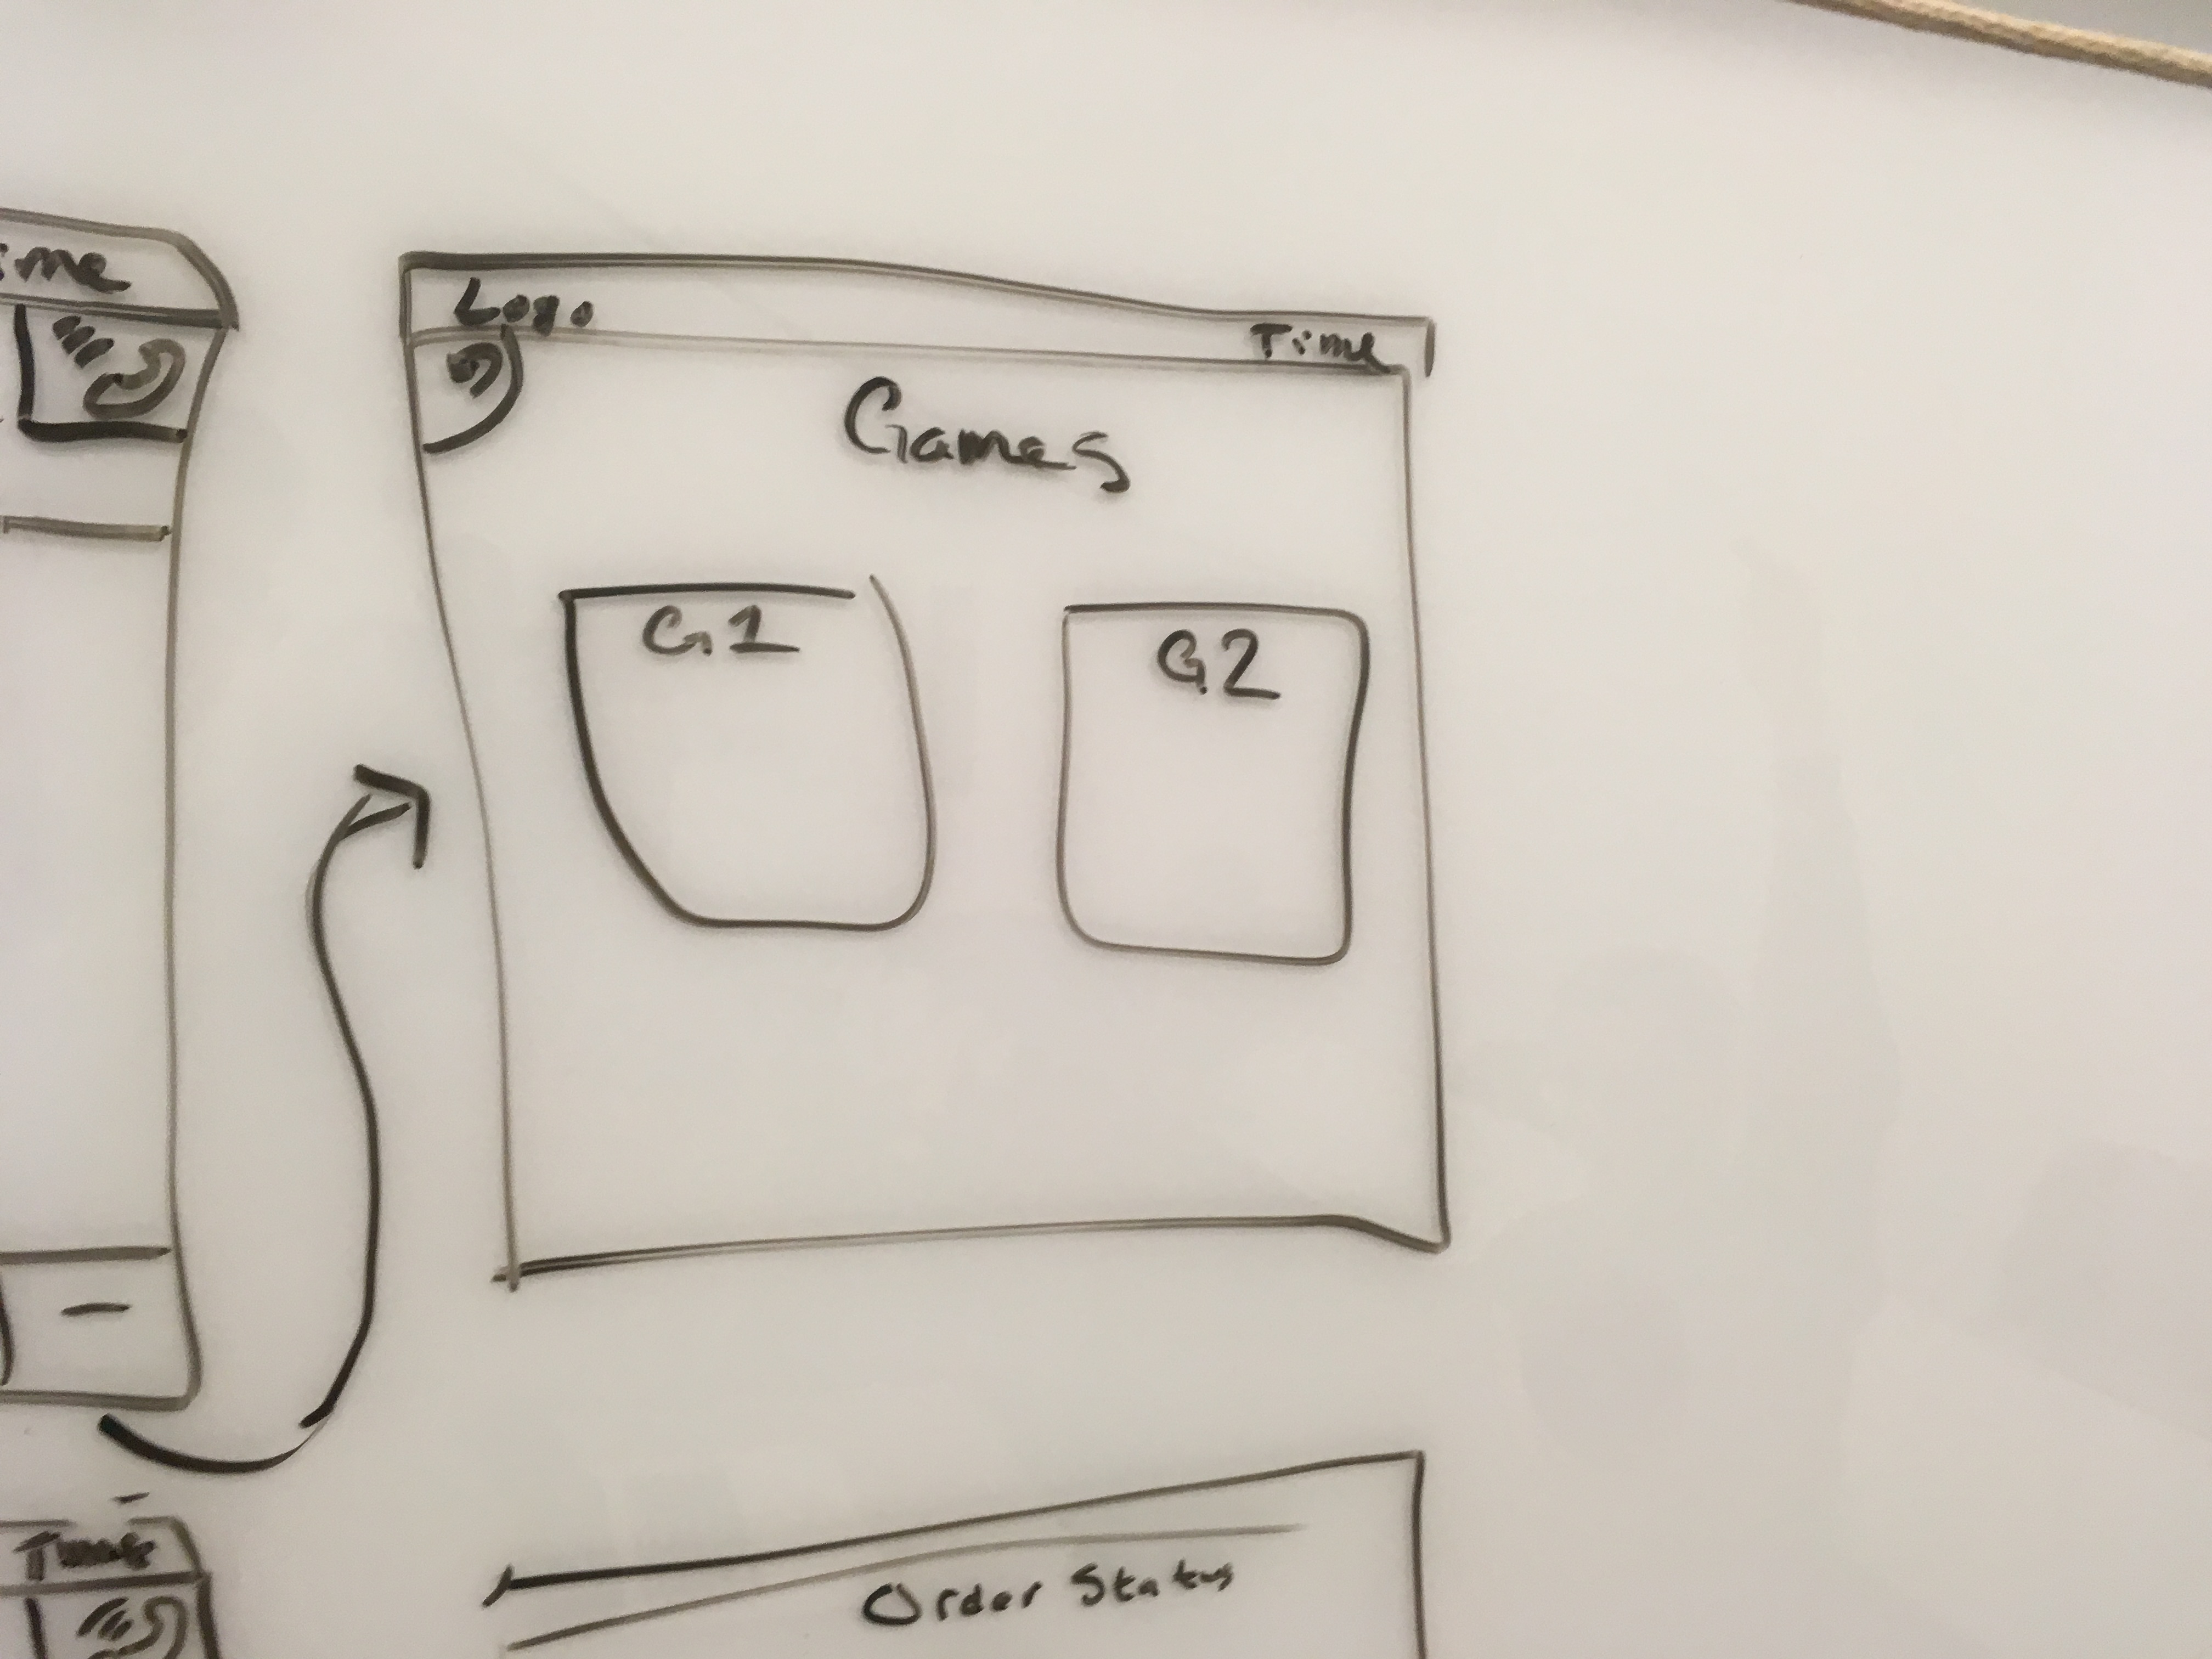 Logo
Time
Games
G1
G2
Order Status